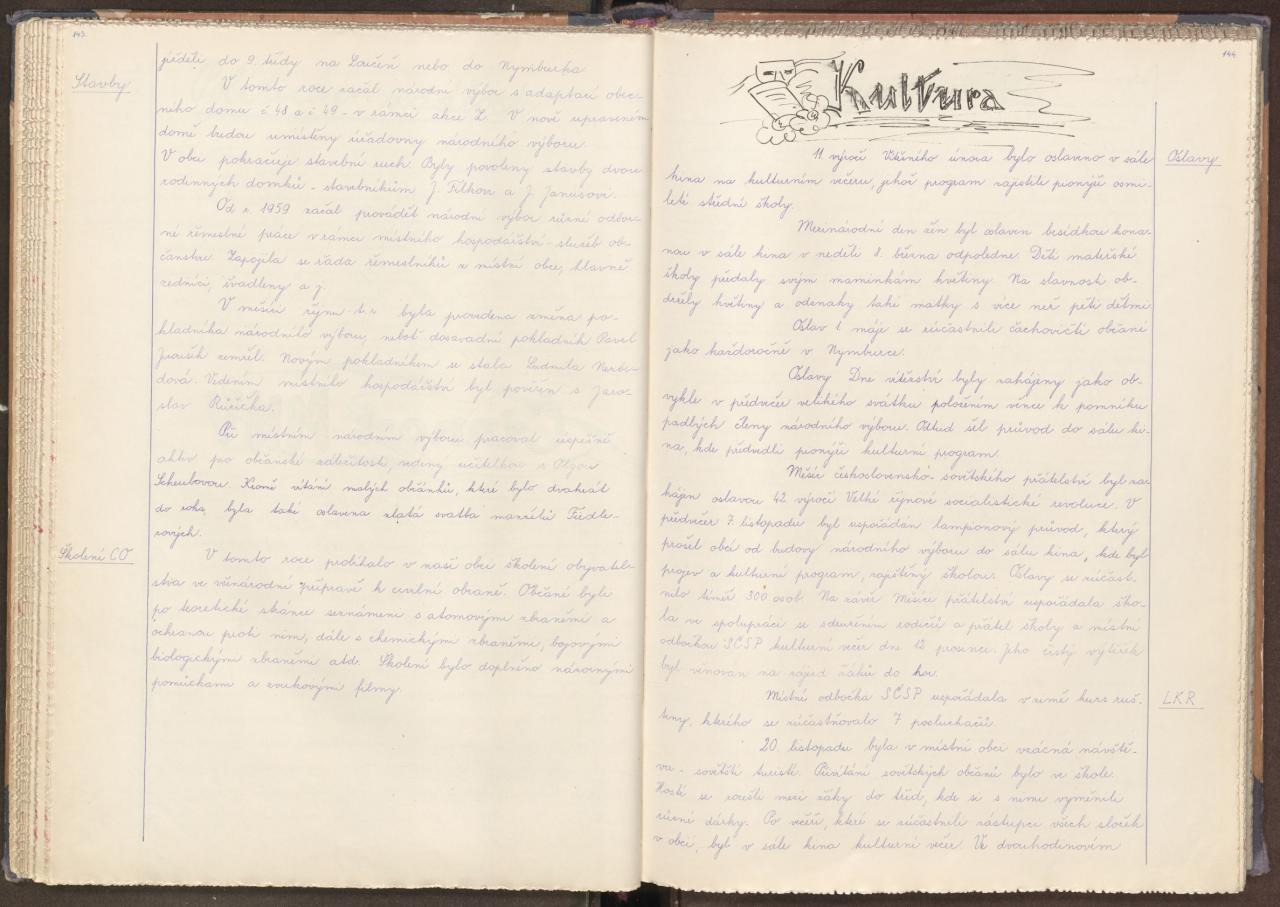 143.
Stavby
jížděli do 9. třídy na Loučeň nebo do Nymburka
V tomto roce začal národní výbor s adaptací obec-
ního domu č 48 a č 49 - v rámci akce Z. V nově upraveném
domě budou umístěny úřadovny národního výboru.
V obci pokračuje stavební ruch. Byly povoleny stavby dvou
rodinných domků - stavebníkům J. Filkovi a J. Janusovi.
Od r. 1959 začal provádět národní výbor různé odbor-
né řemeslné práce v rámci místního hospodářství - služeb ob-
čanstvu. Zapojila se řada řemeslníků z místní obce, hlavně
zedníci, švadleny a j.
V měsíci říjnu t. r. byla provedena změna po-
kladníka národního výboru, neboť dosavadní pokladník Pavel
Jiroušek zemřel. Novým pokladníkem se stala Ludmila Nerbe-
dová. Vedením místního hospodářství byl pověřen s Jaro-
slav Růžička.
Při místním národním výboru pracoval úspěšně
aktiv pro občanské záležitosti, vedený učitelkou s Olgou
Scheubovou. Kromě vítání malých občánků, které bylo dvakrát
do roka, byla také oslavena zlatá svatba manželů Fiedle-
rových.
Školení CO
V tomto roce probíhalo v naší obci školení obyvatel-
stva ve všenárodní přípravě k civilní obraně. Občané byli
po teoretické stránce seznámeni s atomovými zbraněmi a
ochranou proti nim, dále s chemickými zbraněmi, bojovými
biologickými zbraněmi atd. Školení bylo doplněno názornými
pomůckami a zvukovými filmy.
144.
Kultura
Oslavy
11 výročí Vítězného února bylo oslaveno v sále
kina na kulturním večeru, jehož program zajistili pionýři osmi-
leté střední školy.
Mezinárodní den žen byl oslaven besídkou kona-
nou v sále kina v neděli 8. března odpoledne. Děti mateřské
školy předaly svým maminkám květiny. Na slavnosti ob-
držely květiny a odznaky také matky s více než pěti dětmi.
Oslav 1. máje se zúčastnili čachovičtí občané
jako každoročně v Nymburce.
Oslavy Dne vítězství byly zahájeny jako ob-
vykle v předvečer velikého svátku položením věnce k pomníku
padlých členy národního výboru. Odtud šel průvod do sálu ki-
na, kde předvedli pionýři kulturní program.
Měsíc československo-sovětského přátelství byl za-
hájen oslavou 42. výročí Velké říjnové socialistické revoluce. V
předvečer 7. listopadu byl uspořádán lampionový průvod, který
prošel obcí od budovy národního výboru do sálu kina, kde byl
projev a kulturní program, zajištěný školou. Oslavy se zúčast-
nilo téměř 300 osob. Na závěr Měsíce přátelství uspořádala ško-
la ve spolupráci se sdružením rodičů a přátel školy a místní
odbočkou SČSP kulturní večer dne 12 prosince. Jeho čistý výtěžek
byl věnován na zájezd žáků do hor.
LKR
Místní odbočka SČSP uspořádala v zimě kurs ruš-
tiny, kterého se zúčastňovalo 7 posluchačů.
20. listopadu byla v místní obci vzácná návště-
va - sovětští turisté. Přivítání sovětských občanů bylo ve škole.
Hosté se rozešli mezi žáky do tříd, kde si s nimi vyměnili
různé dárky. Po večeři, které se zúčastnili zástupci všech složek
v obci, byl v sále kina kulturní večer. Ve dvouhodinovém